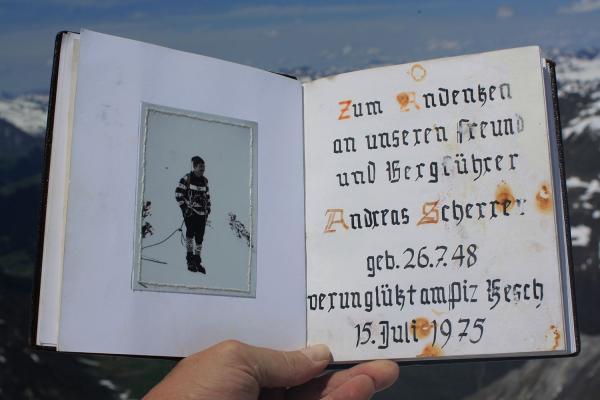 Zum Andenken
an unseren Freund
und Bergführer
Andreas Scherrer
geb. 26.7.48
verunglükt am Piz Kesch
15. Juli 1975